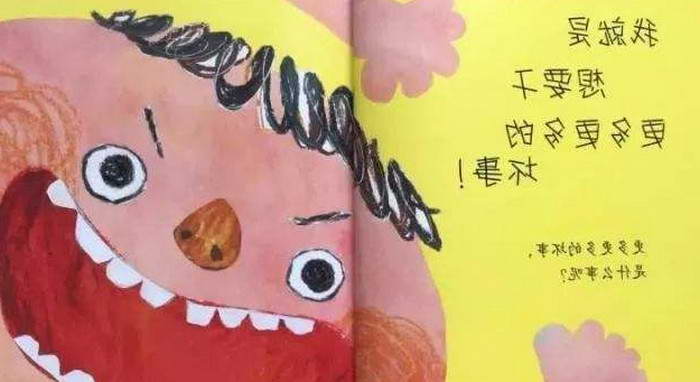 我就是
想要干
更多更多的
坏事！
更多更多的坏事，
是什么事呢？